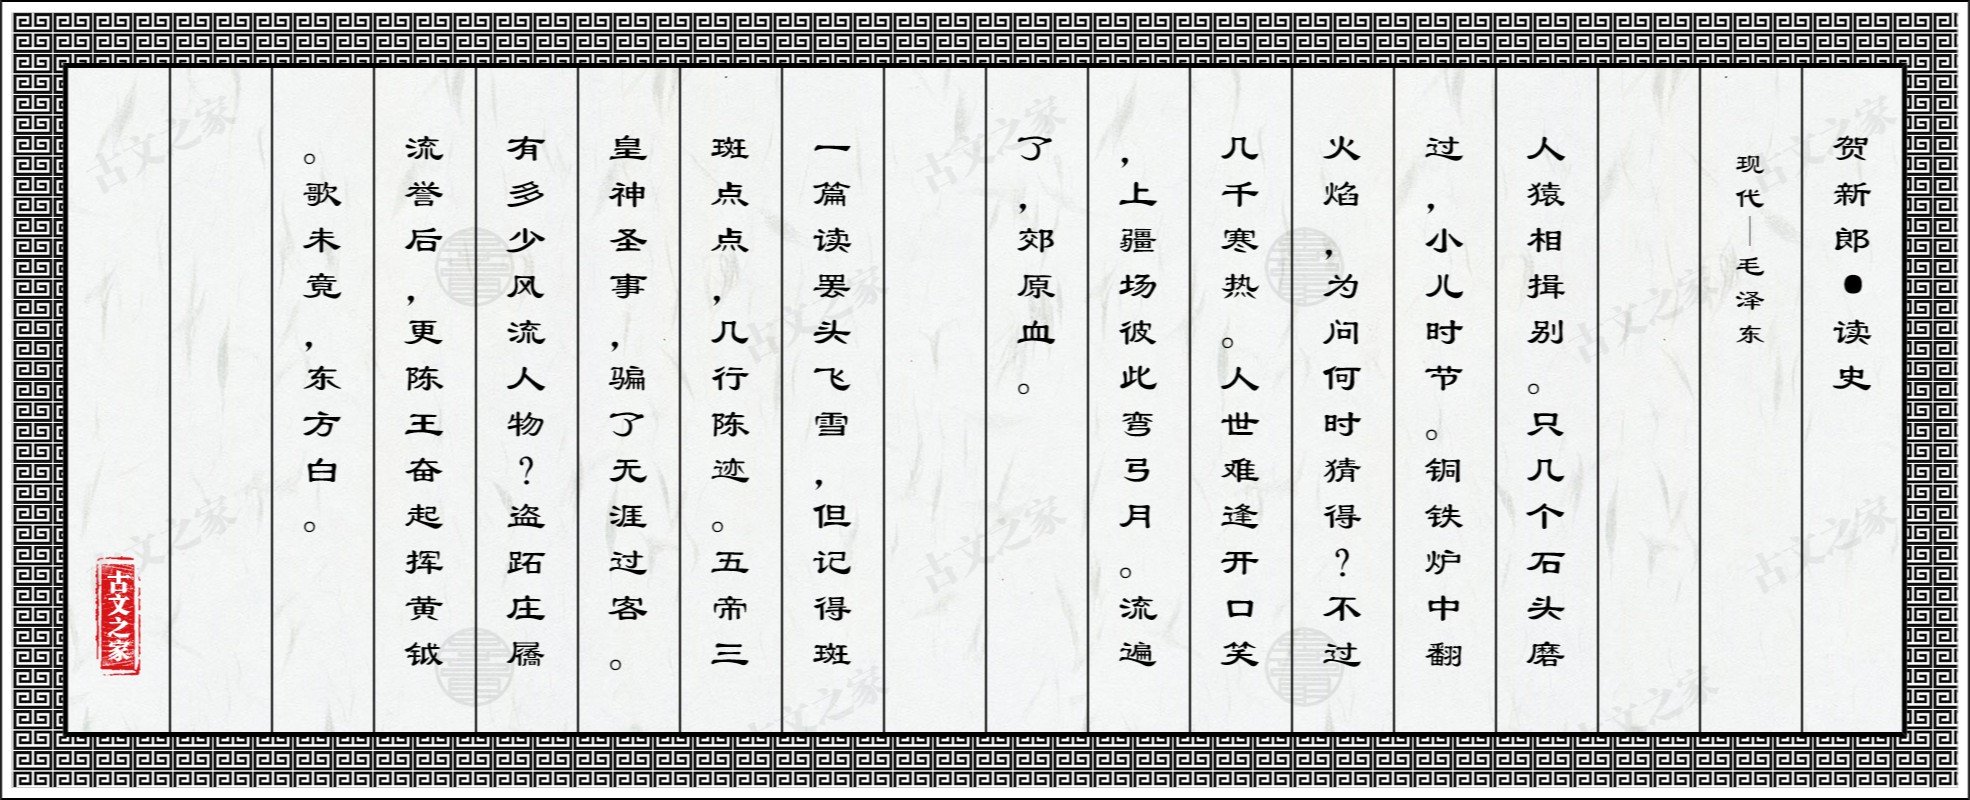 贺新郎●读史
现代—毛泽东
人猿相揖别。只几个石头磨
过，小儿时节。铜铁炉中翻
火焰，为问何时猜得？不过
几千寒热。人世难逢开口笑
，上疆场彼此弯弓月。流遍
了，郊原血。
一篇读罢头飞雪，但记得斑
斑点点，几行陈迹。五帝三
皇神圣事，骗了无涯过客。
有多少风流人物？盗跖庄屩
流誉后，更陈王奋起挥黄钺
。歌未竟，东方白。
古文之家